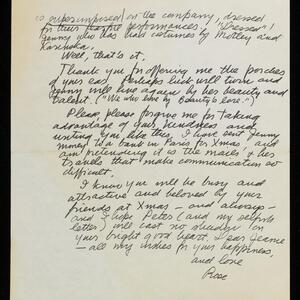 is superimposed) on the company, dressed
for their theatre performances! "Dressed"!
Jenny who has had costumes by Motley and
Karinska.
Well, that's it.
Thank you for offering me the porches
of your ear. Perhaps luck will turn and
Jenny will live again by her beauty and
talent. ("We who live by Beauty's love.")
Please, please forgive me for taking
advantage of your kindness and
writing you like this. I have sent Jenny
money to a bank in Paris for Xmas, and
am pretending it is the mails & her
travels that make communication so
difficult.
I know you will be busy and
attractive and beloved by your
friends at Xmas — and always —
and I hope Peter (and my selfish
letter) will cast no shadow on
your bright good heart. Dear Jeanne
— all my wishes for your happiness,
and love
Rose